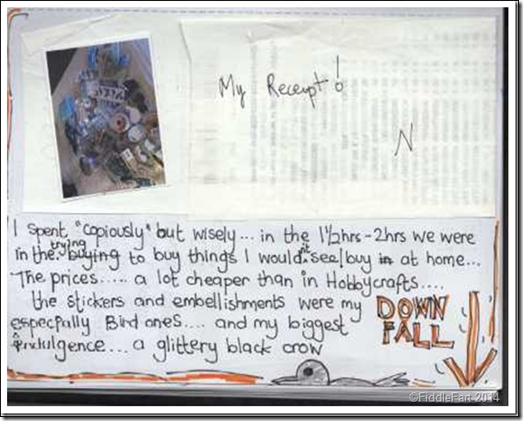 My Receipt!
N
I spent "copiously" but wisely... in the 1½hrs-2hrs we were
in there trying to buy things I would n't see/buy at home...
The prices..... a lot cheaper than in Hobbycrafts....
the stickers and embellishments were my DOWN
FALL
especially Bird ones.... and my biggest
indulgence.... a glittery black crow
©FiddleFart 2014